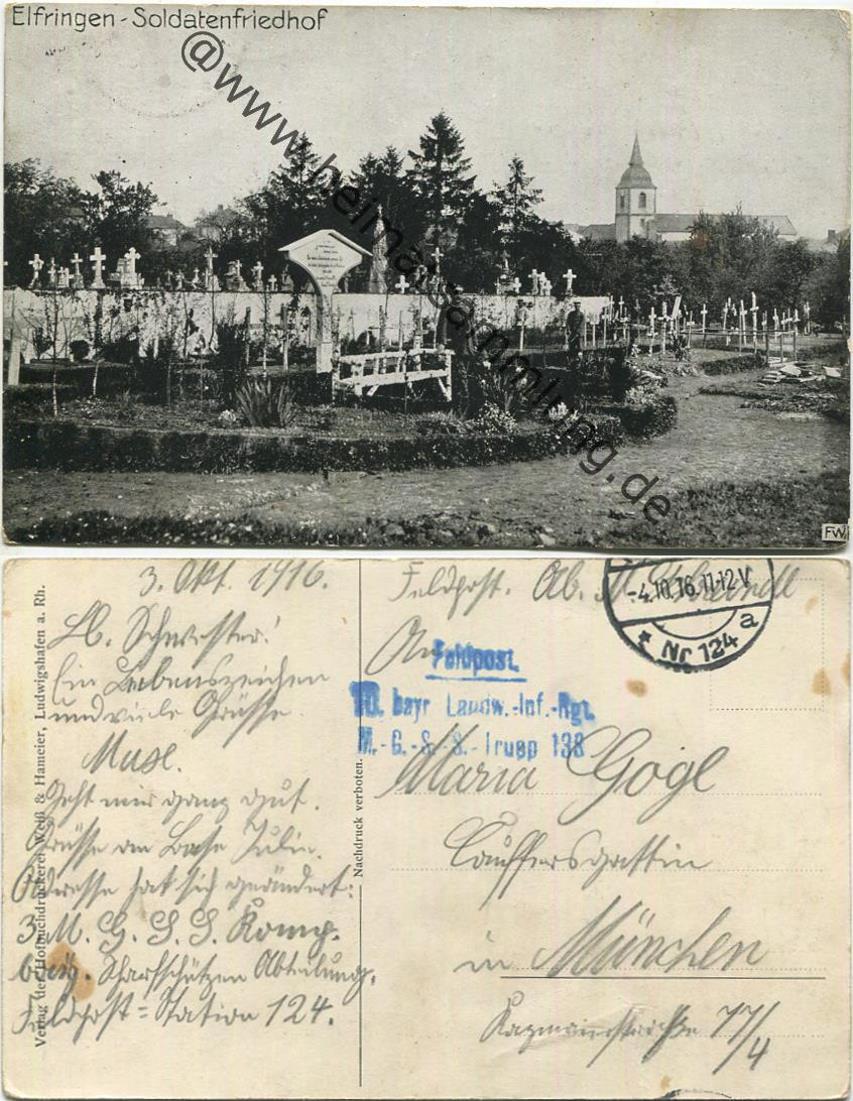 Elfringen - Soldatenfriedhof
@www.heimatsammlung.de
FW
Verlag der Hofbuchdruckerei Weiß & Hameier, Ludwigshafen a. Rh.
Nachdruck verboten.
3. Okt. 1916.
Lb. Schwester!
Ein Lebenszeichen
und viele Grüsse.
Muse.
Geht mir ganz gut.
Grüsse an Base Julie.
Adresse hat sich geändert:
3 M. G. S. S. Komp.
bayg. Scharfschützen Abteilung.
Feldpost = Station 124.
Feldpost. Ab. M.
-4.10.16.11-12 V
* Nr 124 a
An
Feldpost.
10. bayr Landw.-Inf.-Rgt.
M.-G.-S.-S.-Trupp 138
Maria Gögl
Läuffersgattin
in München
Kazmairstrasse 77/4